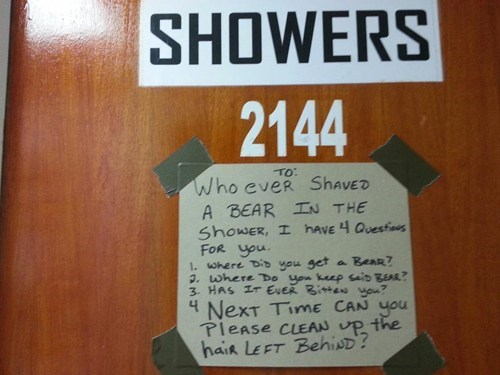 SHOWERS
2144
TO:
Who ever SHAVED
A BEAR IN THE
SHOWER, I HAVE 4 Questions
FOR you.
1. Where DiD you get a BEAR?
2. Where Do you keep SaiD BEAR?
3. HAS IT EVER Bitten you?
4 NEXT TIME CAN you
PLEASE CLEAN up the
haiR LEFT BehiND?